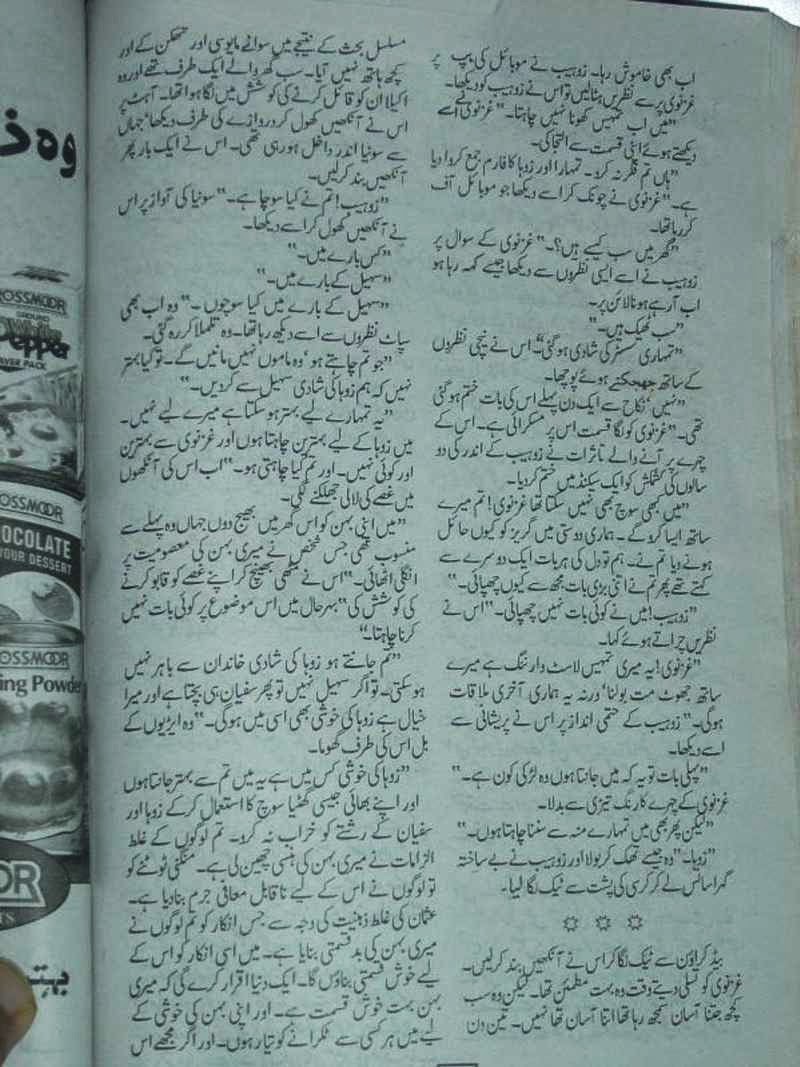 اب بھی خاموش رہا۔ زوہیب نے موبائل کی بپ پر
غزنوی پر سے نظریں ہٹالیں تو اس نے زوہیب کو دیکھا۔
”میں اب تمہیں کھونا نہیں چاہتا۔“ غزنوی نے اسے
دیکھتے ہوئے اپنی قسمت سے التجا کی۔
”ہاں تم فکر نہ کرو۔ تمہارا اور زوہا کا فارم جمع کروا دیا
ہے۔“ غزنوی نے چونک کر اسے دیکھا جو موبائل آف
کر رہا تھا۔
”گھر میں سب کیسے ہیں؟“ غزنوی کے سوال پر
زوہیب نے اسے ایسی نظروں سے دیکھا جیسے کہہ رہا ہو
اب آرہے ہونا لائن پر۔
”سب ٹھیک ہیں۔“
”تمہاری سسٹر کی شادی ہوگئی؟“ اس نے نیچی نظروں
کے ساتھ جھجکتے ہوئے پوچھا۔
”نہیں‘ نکاح سے ایک دن پہلے اس کی بات ختم ہوگئی
تھی۔“ غزنوی کو لگا قسمت اس پر مسکرائی ہے۔ اس کے
چہرے پر آنے والے تاثرات نے زوہیب کے اندر کی دو
سالوں کی کشمکش کو ایک سیکنڈ میں ختم کردیا۔
”میں کبھی سوچ بھی نہیں سکتا تھا غزنوی! تم میرے
ساتھ ایسا کرو گے۔ ہماری دوستی میں گریز کو کیوں حائل
ہونے دیا تم نے۔ ہم تو دل کی ہر بات ایک دوسرے سے
کہتے تھے پھر تم نے اتنی بڑی بات مجھ سے کیوں چھپائی۔“
”زوہیب! میں نے کوئی بات نہیں چھپائی۔“ اس نے
نظریں چراتے ہوئے کہا۔
”غزنوی! یہ میری تمہیں لاسٹ وارننگ ہے میرے
ساتھ جھوٹ مت بولنا‘ ورنہ یہ ہماری آخری ملاقات
ہوگی۔“ زوہیب کے حتمی انداز پر اس نے پریشانی سے
اسے دیکھا۔
”پہلی بات تو یہ کہ میں جانتا ہوں وہ لڑکی کون ہے۔“
غزنوی کے چہرے کا رنگ تیزی سے بدلا۔
”لیکن پھر بھی میں تمہارے منہ سے سننا چاہتا ہوں۔“
”زوہا۔“ وہ جیسے تھک کر بولا اور زوہیب نے بے ساختہ
گہرا سانس لے کر کرسی کی پشت سے ٹیک لگالیا۔
☼ ☼ ☼
بیڈ کراؤن سے ٹیک لگا کر اس نے آنکھیں بند کرلیں۔
غزنوی کو تسلی دیتے وقت وہ بہت مطمئن تھا۔ لیکن وہ سب
کچھ جتنا آسان سمجھ رہا تھا اتنا آسان تھا نہیں۔ تین دن
مسلسل بحث کے نتیجے میں سوائے مایوسی اور تھکن کے اور
کچھ ہاتھ نہیں آیا۔ سب گھر والے ایک طرف تھے اور وہ
اکیلا ان کو قائل کرنے کی کوشش میں لگا ہوا تھا۔ آہٹ پر
اس نے آنکھیں کھول کر دروازے کی طرف دیکھا‘ جہاں
سے سونیا اندر داخل ہو رہی تھی۔ اس نے ایک بار پھر
آنکھیں بند کرلیں۔
”زوہیب! تم نے کیا سوچا ہے۔“ سونیا کی آواز پر اس
نے آنکھیں کھول کر اسے دیکھا۔
”کس بارے میں۔“
”سہیل کے بارے میں۔“
”سہیل کے بارے میں کیا سوچوں۔“ وہ اب بھی
سپاٹ نظروں سے اسے دیکھ رہا تھا۔ وہ تلملا کر رہ گئی۔
”جو تم چاہتے ہو‘ وہ ماموں نہیں مانیں گے۔ تو کیا بہتر
نہیں کہ ہم زوہا کی شادی سہیل سے کردیں۔“
”یہ تمہارے لیے بہتر ہو سکتا ہے میرے لیے نہیں۔
میں زوہا کے لیے بہترین چاہتا ہوں اور غزنوی سے بہترین
اور کوئی نہیں۔ اور تم کیا چاہتی ہو۔“ اب اس کی آنکھوں
میں غصے کی لالی جھلکنے لگی۔
”میں اپنی بہن کو اس گھر میں بھیج دوں جہاں وہ پہلے سے
منسوب تھی جس شخص نے میری بہن کی معصومیت پر
انگلی اٹھائی۔“ اس نے مٹھی بھینچ کر اپنے غصے کو قابو کرنے
کی کوشش کی ”بہرحال میں اس موضوع پر کوئی بات نہیں
کرنا چاہتا۔“
”تم جانتے ہو زوہا کی شادی خاندان سے باہر نہیں
ہو سکتی۔ تو اگر سہیل نہیں تو پھر سفیان ہی بچتا ہے اور میرا
خیال ہے زوہا کی خوشی بھی اسی میں ہوگی۔“ وہ ایڑیوں کے
بل اس کی طرف گھوما۔
”زوہا کی خوشی کس میں ہے یہ میں تم سے بہتر جانتا ہوں
اور اپنے بھائی جیسی گھٹیا سوچ کا استعمال کرکے زوہا اور
سفیان کے رشتے کو خراب نہ کرو۔ تم لوگوں کے غلط
الزامات نے میری بہن کی ہنسی چھین لی ہے۔ منگنی ٹوٹنے کو
تو لوگوں نے اس کے لیے ناقابل معافی جرم بنا دیا ہے۔
عثمان کی غلط ذہنیت کی وجہ سے جس انکار کو تم لوگوں نے
میری بہن کی بدقسمتی بنایا ہے۔ میں اسی انکار کو اس کے
لیے خوش قسمتی بناؤں گا۔ ایک دنیا اقرار کرے گی کہ میری
بہن بہت خوش قسمت ہے۔ اور اپنی بہن کی خوشی کے
لیے میں ہر کسی سے ٹکرانے کو تیار ہوں۔ اور اگر مجھے اس
وہ ذ
OSSMOOR
GROUND
White
Pepper
VER PACK
OSSMOOR
OCOLATE
OUR DESSERT
OSSMOOR
ing Powder
OR
TS
بہتر